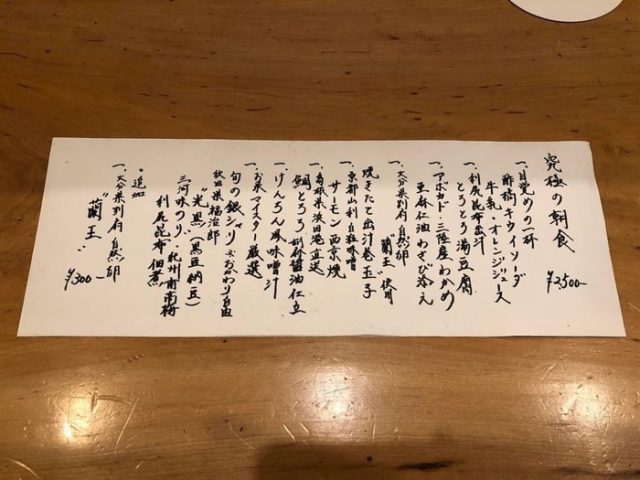 究極の朝食
¥2500-
一、目覚めの一杯
酢橘キウイソーダ
牛乳・オレンジジュース
一、利尻昆布出汁
とろとろ湯豆腐
一、アボカド・三陸産わかめ
亜麻仁油わさび添え
一、大分県別府 自然卵
“蘭王” 使用
焼きたて出汁巻玉子
一、京都山利白粒味噌
サーモン西京焼
一、島根県浜田港直送
鯛とろろ 胡麻醤油仕立
一、けんちん風味噌汁
一、お米マイスター厳選
旬の銀シャリ ※おかわり自由
秋田県福治郎
“光黒”(黒豆納豆)
三河味つけのり・紀州南高梅
利尻昆布佃煮
・追加
一、大分県別府 自然卵
“蘭王”
¥300-